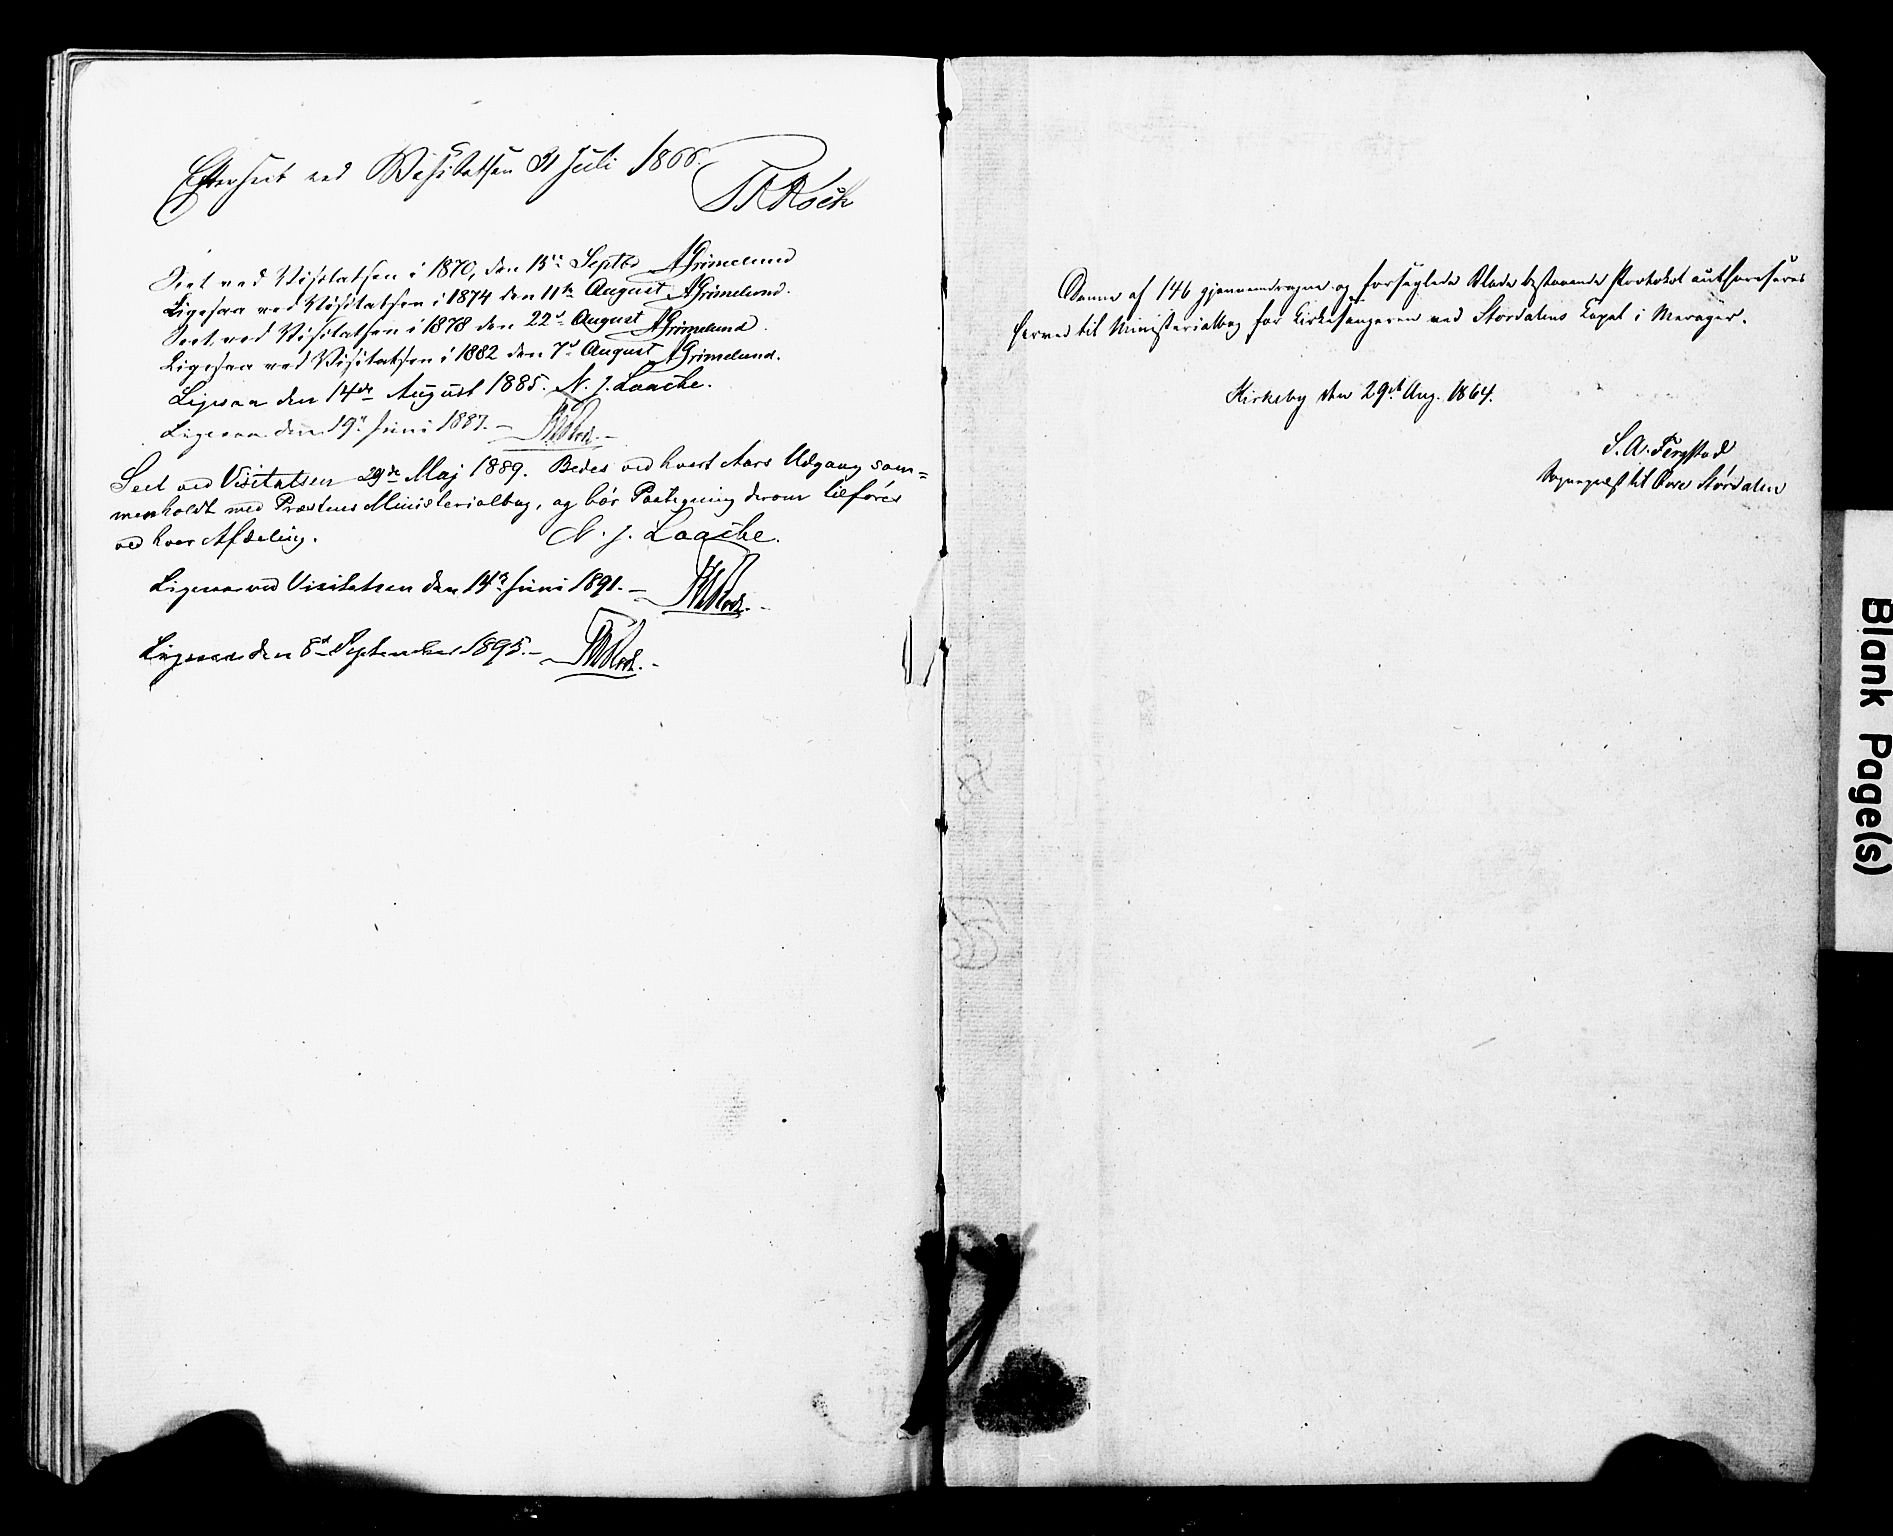 Efterseet ved Visitatsen 31 Juli 1866.
Seet ved Visitatsen i 1870, den 15de Septbr AGrimelund
Ligesaa ved Visitatsen i 1874 den 11te August AGrimelund.
Seet ved Visitatsen i 1878 den 22d August AGrimelund.
Ligesaa ved Visitatsen i 1882 den 7d August AGrimelund.
Ligesaa den 14de August 1885. N. J. Laache.
Ligesaa den 19de Juni 1887. –
Seet ved Visitatsen 29de Maj 1889. Bedes ved hvert Aars Udgang sam=
menholdt med Præstens Ministerialbog, og bør Paategning derom tilføres
ved hver Afdeling. N. J. Laache.
Ligesaa ved Visitatsen den 14de Juni 1891. –
Ligesaa den 8d September 1895. –
Denne af 146 gjennemdragne og forseglede Blade bestaaende Protokol authoriseres
herved til Ministerialbog for Kirkesangeren ved Stordalens Capel i Merager.
Kirkeby den 29de Aug. 1864.
S. A.
Sognepræst til Øvre Størdalen
Blank Page(s)